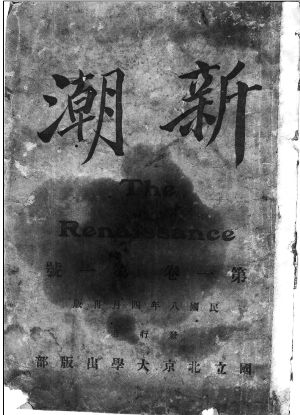 新潮
The
Renaissance
第一卷 第一號
民國八年四月再版
發行
國立北京大學出版部